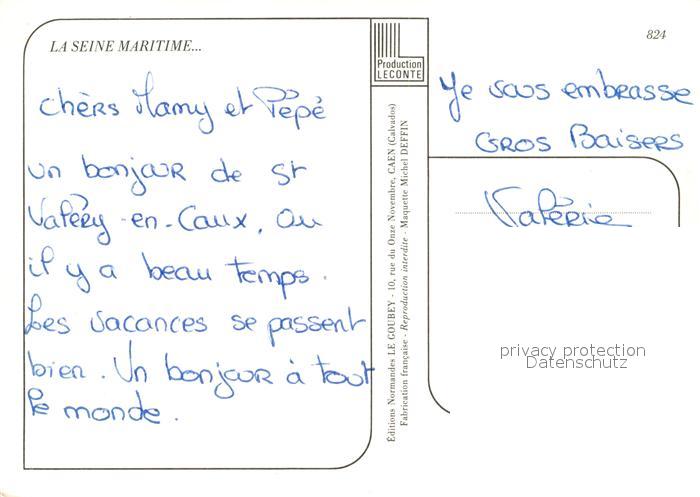 LA SEINE MARITIME...
824
Production
LECONTE
Chèrs Mamy et Pépé
un bonjour de St
Valéry-en-Caux, ou
il y a beau temps.
Les vacances se passent
bien. Un bonjour à tout
le monde.
Éditions Normandes LE GOUBEY - 10, rue du Onze Novembre, CAEN (Calvados)
Fabrication française - Reproduction interdite - Maquette Michel DEFFIN
Je vous embrasse
GROS BAISERS
Valérie
privacy protection
Datenschutz